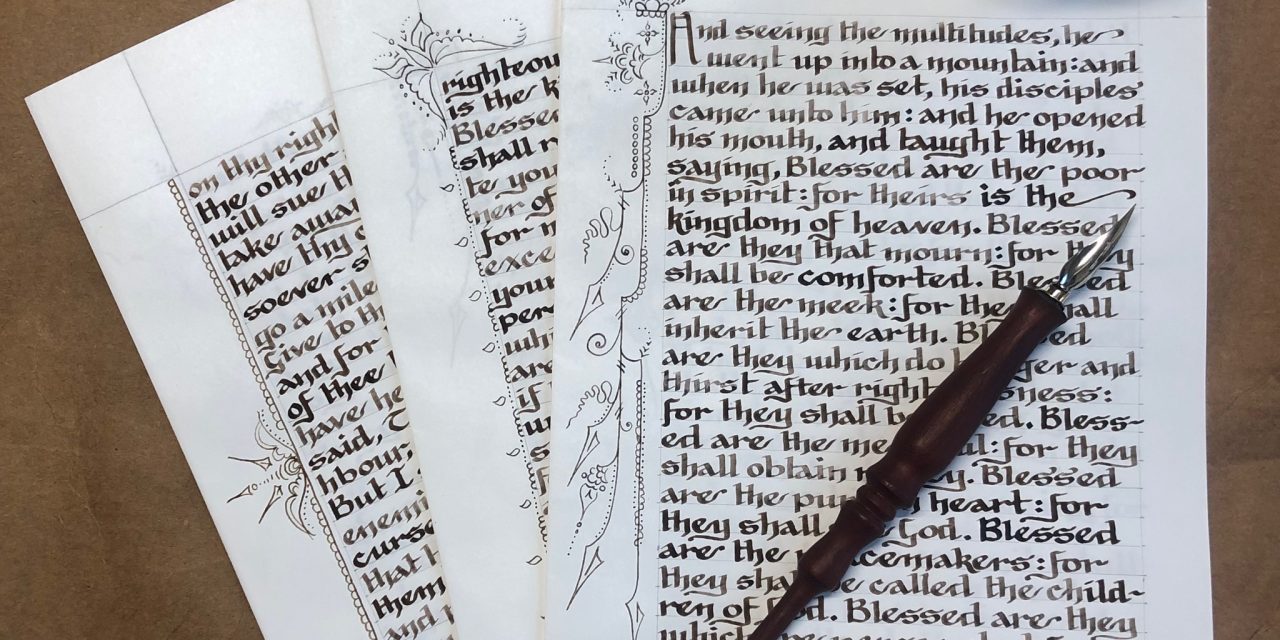 on thy right
the other
will sue th
take away
have thy c
soever s
go a mile
Give to th
and for
of thee
have he
said, T
hbour,
But I
enemi
curse
that h
them
and
righteou
is the k
Blesse
shall r
te you
ner of
for m
exce
your
pers
whi
are
if
un
And seeing the multitudes, he
went up into a mountain: and
when he was set, his disciples
came unto him: and he opened
his mouth, and taught them,
saying, Blessed are the poor
in spirit: for theirs is the
kingdom of heaven. Blessed
are they that mourn: for they
shall be comforted. Blessed
are the meek: for they shall
inherit the earth. Blessed
are they which do hunger and
thirst after righteousness:
for they shall be filled. Bless-
ed are the merciful: for they
shall obtain mercy. Blessed
are the pure in heart: for
they shall see God. Blessed
are the peacemakers: for
they shall be called the child-
ren of God. Blessed are they
which